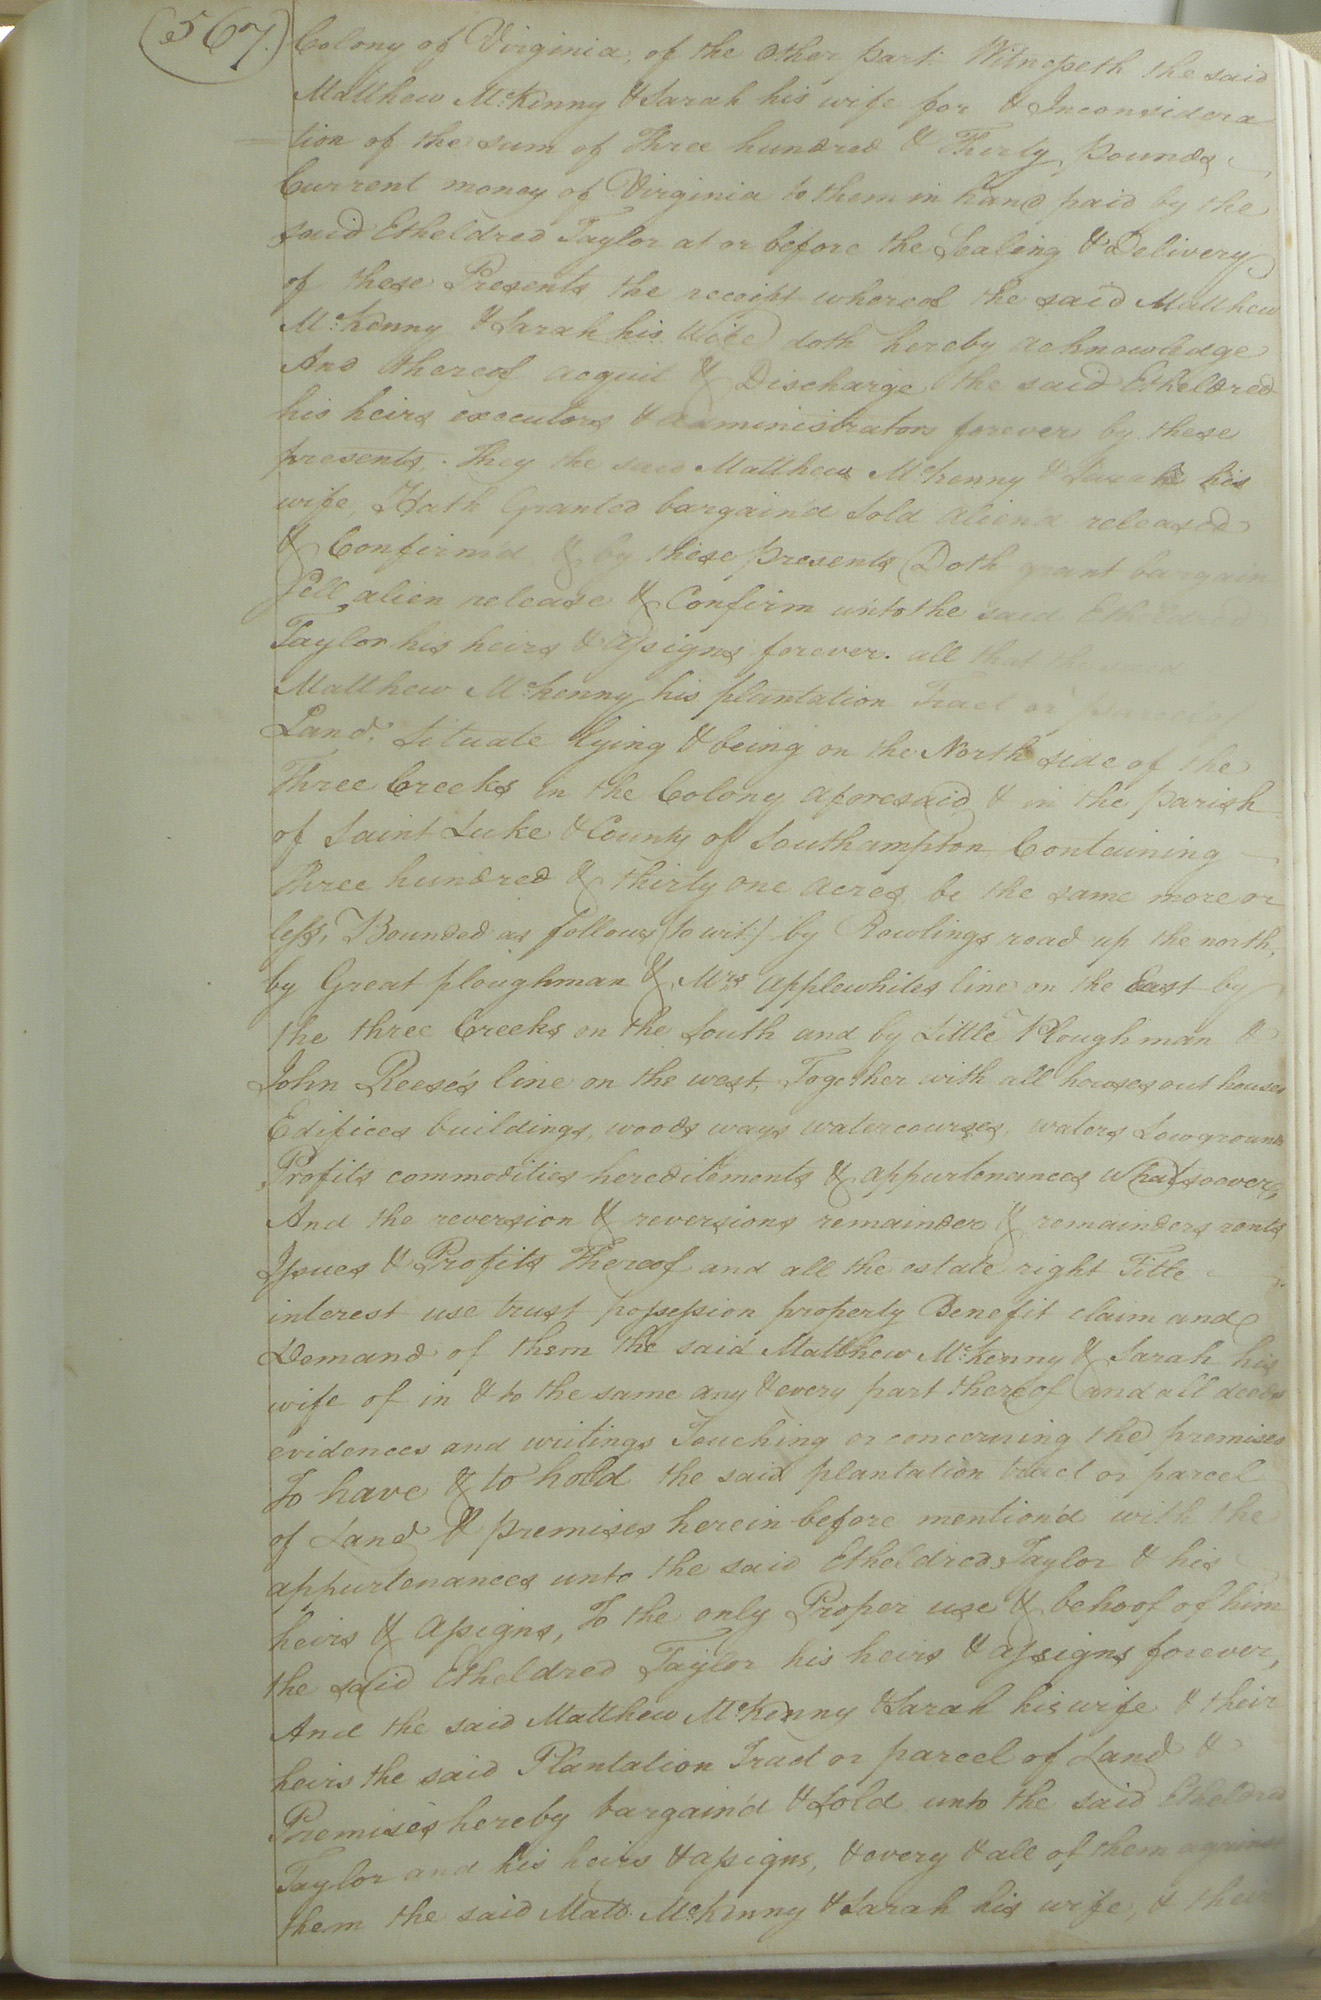 (567.)
Colony of Virginia, of the Other part Witnesseth the said
Matthew McKinny & Sarah his wife for & Inconsidera
tion of the sum of Three hundred & Thirty, Pounds
Current money of Virginia to them in hand paid by the
said Etheldred Taylor at or before the Sealing & Delivery
of these Presents the receipt whereof the said Matthew
McKenny & Sarah his Wife doth hereby acknowledge
And thereof acquit & Discharge the said Etheldred
his heirs executors & administrators forever by these
presents. They the said Matthew McKenny & Sarah his
wife, Hath Granted bargain'd Sold alien'd released
& Confirm'd & by these presents Doth grant bargain
Sell alien release & Confirm unto the said Etheldred
Taylor his heirs & assigns forever. all that the said
Matthew McKenny his plantation Tract or parcel of
Land. Situate lying & being on the North side of the
Three Creeks in the Colony aforesaid & in the parish
of Saint Luke & County of Southampton Containing
Three hundred & thirty one acres be the same more or
less, Bounded as follows (to wit:) by Rowlings road up the north,
by Great ploughman & Mrs Applewhites line on the East by
the three Creeks on the South and by Little Ploughman &
John Reese's line on the west, Together with all houses out houses
Edifices buildings, woods ways watercourses, waters Lowgrounds
Profits commodities hereditements & appurtenances whatsoever,
And the reversion & reversions remainder & remainders rents
Issues & Profits Thereof and all the estate right Title
interest use trust possession property Benefit claim and
Demand of them the said Matthew McKenny & Sarah his
wife of in & to the same any & every part thereof and all deeds
evidences and writings Touching or concerning the premises
To have & to hold the said plantation tract or parcel
of Land & premises herein before mention'd with the
appurtenances unto the said Etheldred Taylor & his
heirs & assigns, To the only Proper use & behoof of him
the said Etheldred Taylor his heirs & assigns forever,
And the said Matthew McKenny & Sarah his wife & their
heirs the said Plantation Tract or parcel of Land &
Premises hereby bargain'd & Sold unto the said Etheldred
Taylor and his heirs & assigns, & every & all of them against
them the said Matt. McKinny & Sarah his wife, & their